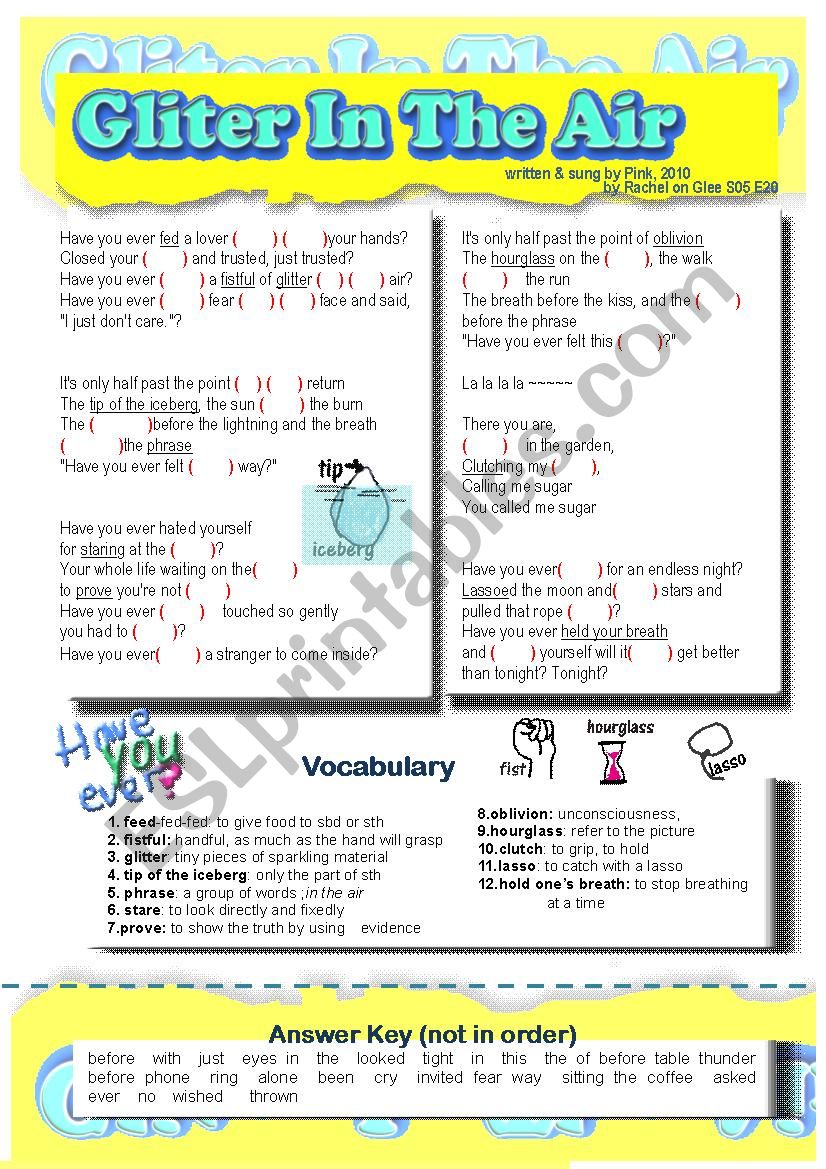 Gliter In The Air
Gliter In The Air
written & sung by Pink, 2010
by Rachel on Glee S05 E20
Have you ever fed a lover ( ) ( )your hands?
Closed your ( ) and trusted, just trusted?
Have you ever ( ) a fistful of glitter ( ) ( ) air?
Have you ever ( ) fear ( ) ( ) face and said,
"I just don't care."?
It's only half past the point ( ) ( ) return
The tip of the iceberg, the sun ( ) the burn
The ( )before the lightning and the breath
( )the phrase
"Have you ever felt ( ) way?"
tip
iceberg
Have you ever hated yourself
for staring at the ( )?
Your whole life waiting on the( )
to prove you're not ( )
Have you ever ( ) touched so gently
you had to ( )?
Have you ever( ) a stranger to come inside?
It's only half past the point of oblivion
The hourglass on the ( ), the walk
( ) the run
The breath before the kiss, and the ( )
before the phrase
"Have you ever felt this ( )?"
La la la la ~~~~~
There you are,
( ) in the garden,
Clutching my ( ),
Calling me sugar
You called me sugar
Have you ever( ) for an endless night?
Lassoed the moon and( ) stars and
pulled that rope ( )?
Have you ever held your breath
and ( ) yourself will it( ) get better
than tonight? Tonight?
Have
you
ever?
Vocabulary
fist
hourglass
lasso
1. feed-fed-fed: to give food to sbd or sth
2. fistful: handful, as much as the hand will grasp
3. glitter: tiny pieces of sparkling material
4. tip of the iceberg: only the part of sth
5. phrase: a group of words ;in the air
6. stare: to look directly and fixedly
7.prove: to show the truth by using evidence
8.oblivion: unconsciousness,
9.hourglass: refer to the picture
10.clutch: to grip, to hold
11.lasso: to catch with a lasso
12.hold one's breath: to stop breathing
at a time
Answer Key (not in order)
before with just eyes in the looked tight in this the of before table thunder
before phone ring alone been cry invited fear way sitting the coffee asked
ever no wished thrown
ESLprintables.com